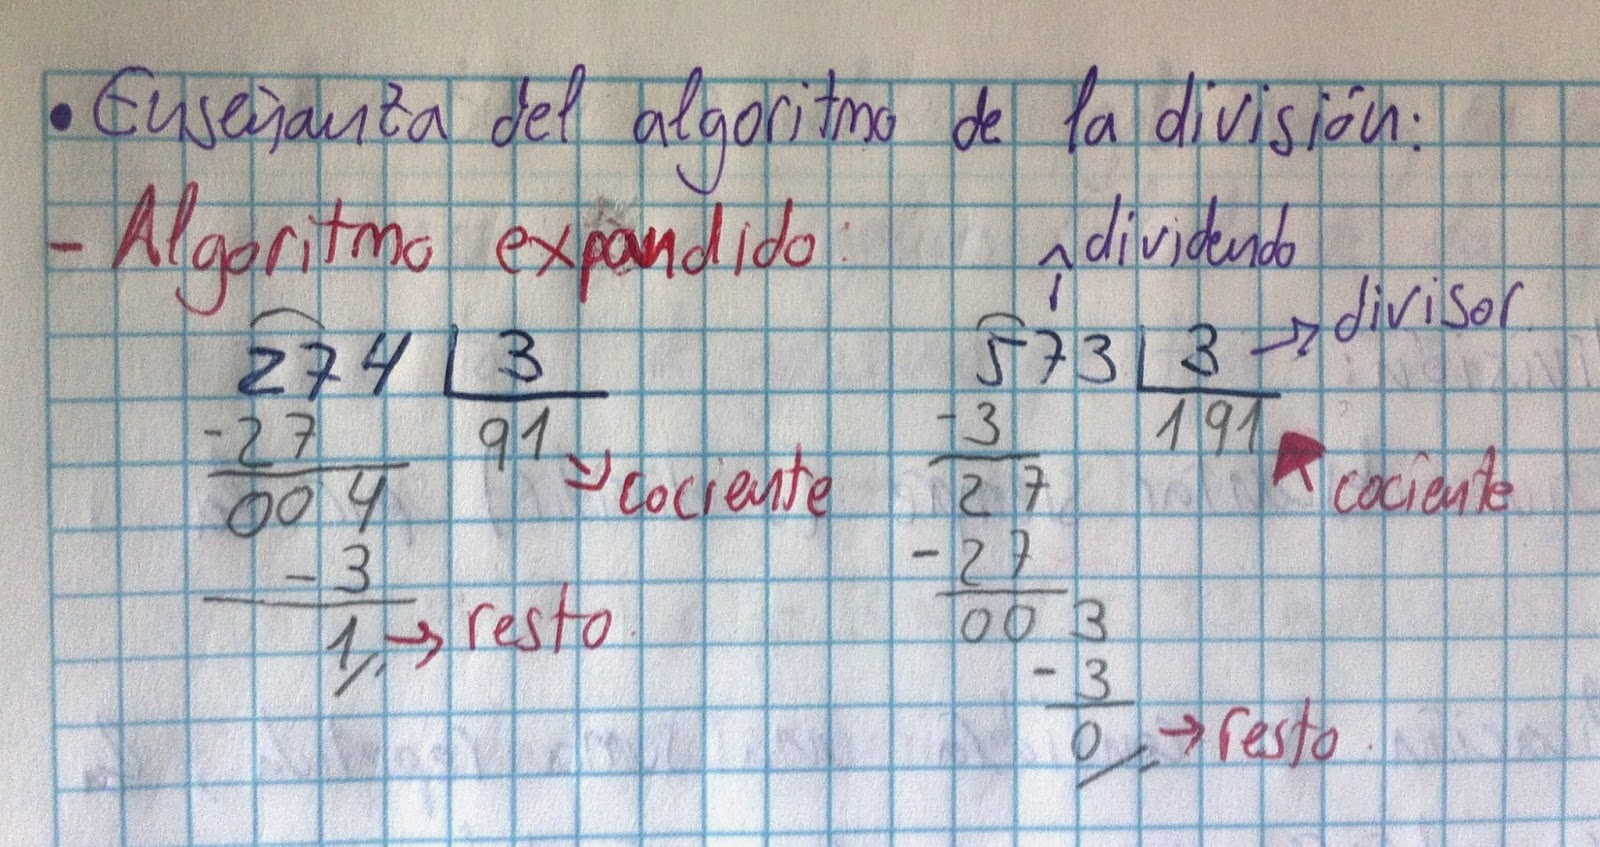 • Enseñanza del algoritmo de la división:
- Algoritmo expandido:
274 3
-27 91
cociente
004
-3
1 → resto.
dividendo
573 3 → divisor.
-3 191
cociente
27
-27
003
-3
0 → resto.